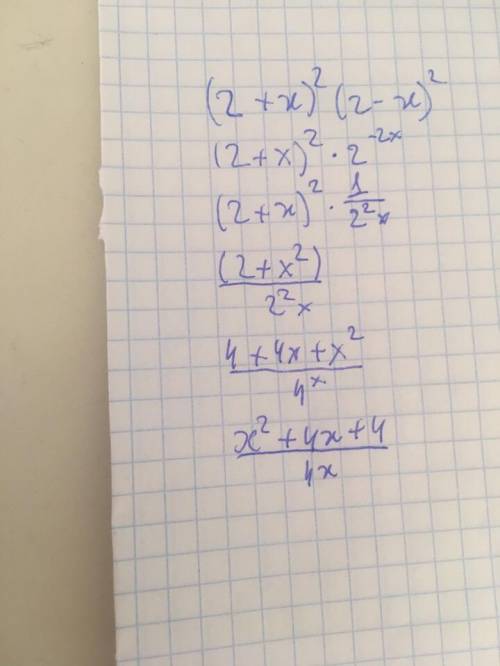 (2 + x)² (2 - x)²
(2 + x)² · 2⁻²ˣ
(2 + x)² · 1/2²x
(2 + x²)/2²x
4 + 4x + x²/4ˣ
x² + 4x + 4/4x